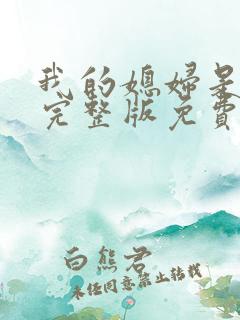 我的媳妇是
完整版免費
白熊君
未任同意禁止转载